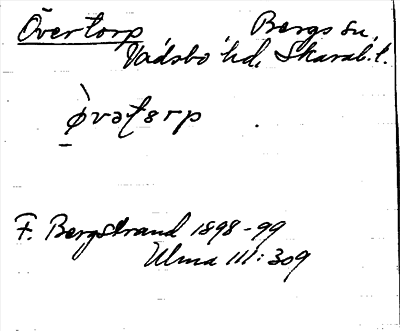 Övertorp, Bergs sn,
Vadsbo hd, Skarab. l.
ø̀vətɛrp
F. Bergstrand 1898-99
Ulma 111:309